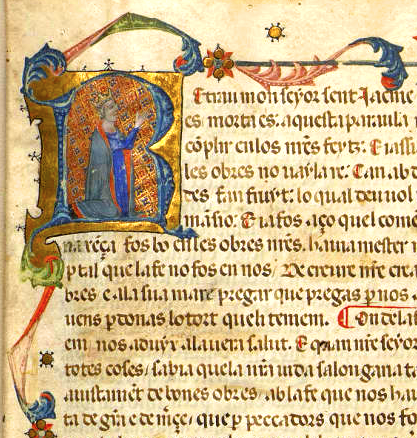 Retrau mon seyor sent Jacme
es morta es. aquesta paraula
cōplir en los nr̄es feyts. E jassi
les obres no vayla re. Can ab d
des fan fruyt: lo qual deu uol
māsio. E ia fos aço quel come
naxēça fos bo en les obres nr̄es. hauia mester
p tal que la fe no fos en nos / De creure nr̄e crea
bres e a la sua mare pregar que pregas p nos
uens pdonas lo tort que li teniem. On de la f
em nos aduyx a la uera salut. E quan nr̄e seyor
totes coses / sabia que la nr̄a uida salongaria ta
aiustamēt de bones obres / ab la fe que nos hau
ta de grā e de mīçe / que p peccadors que nos fo